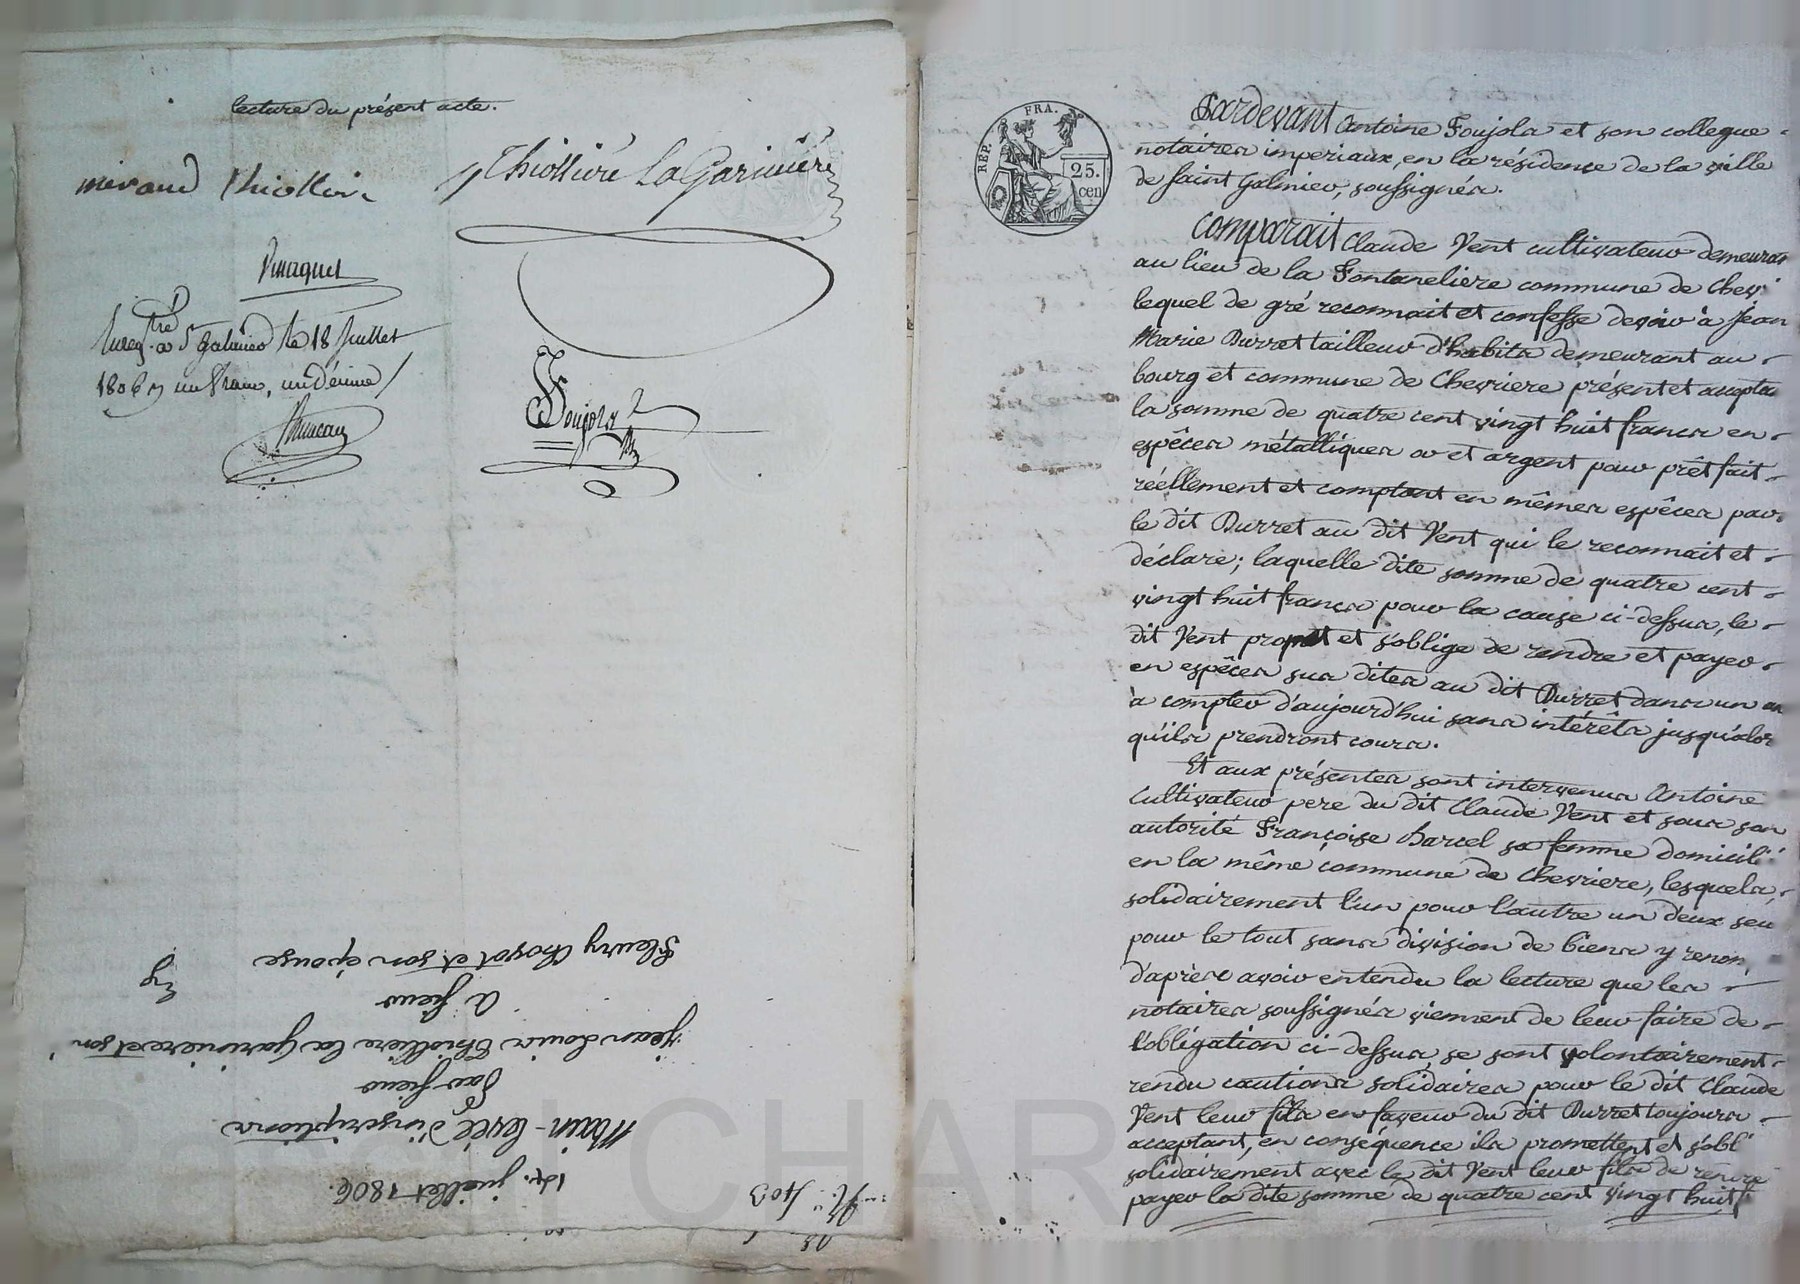 lecture du présent acte.
meraud Thiollire Thiolliere LaGarinière
Enregtré a St Galmier le 18 Juillet
1806 un franc, un décime
Foujols
14. juillet 1806.
Main-levée d'inscriptions
Par sieur
jean Louis Thiolliere la Garinière et son
a sieur
fleury et son épouse
REP. FRA.
25.
cen
Pardevant Antoine Foujols et son collegue
notaires imperiaux, en la résidence de la ville
de Saint Galmier, soussignés.
Comparait Claude Vent cultivateur demeuran
au lieu de la Fontaneliere commune de Chevr
lequel de gré reconnait et confesse devoir à Jean
Marie Durret tailleur d'habits demeurant au
bourg et commune de Chevriere présent et accepta
la somme de quatre cent vingt huit francs en
espêces métalliques or et argent pour prêt fait
réellement et comptant en mêmes espêces par
le dit Durret au dit Vent qui le reconnait et
déclare; laquelle dite somme de quatre cent
vingt huit francs pour la cause ci-dessus, le
dit Vent promet et s'oblige de rendre et payer
en espêces sus dites au dit Durret dans un an
a compter d'aujourd'hui sans intérêts jusqu'alor
qu'ils prendront cours.
Et aux présentes sont intervenus Antoine
Cultivateur pere du dit Claude Vent et sous son
autorité Françoise Barcel sa femme domicili
en la même commune de Chevriere, lesquels,
solidairement l'un pour l'autre un deux seu
pour le tout sans division de biens y renon,
d'après avoir entendu la lecture que les
notaires soussignés viennent de leur faire de
l'obligation ci-dessus, se sont volontairement
rendu cautions solidaires pour le dit Claude
Vent leur fils en faveur du dit Durret toujours
acceptant, en conséquence ils promettent et s'obl
solidairement avec le dit Vent leur fils de rendre
payer la dite somme de quatre cent vingt huit f